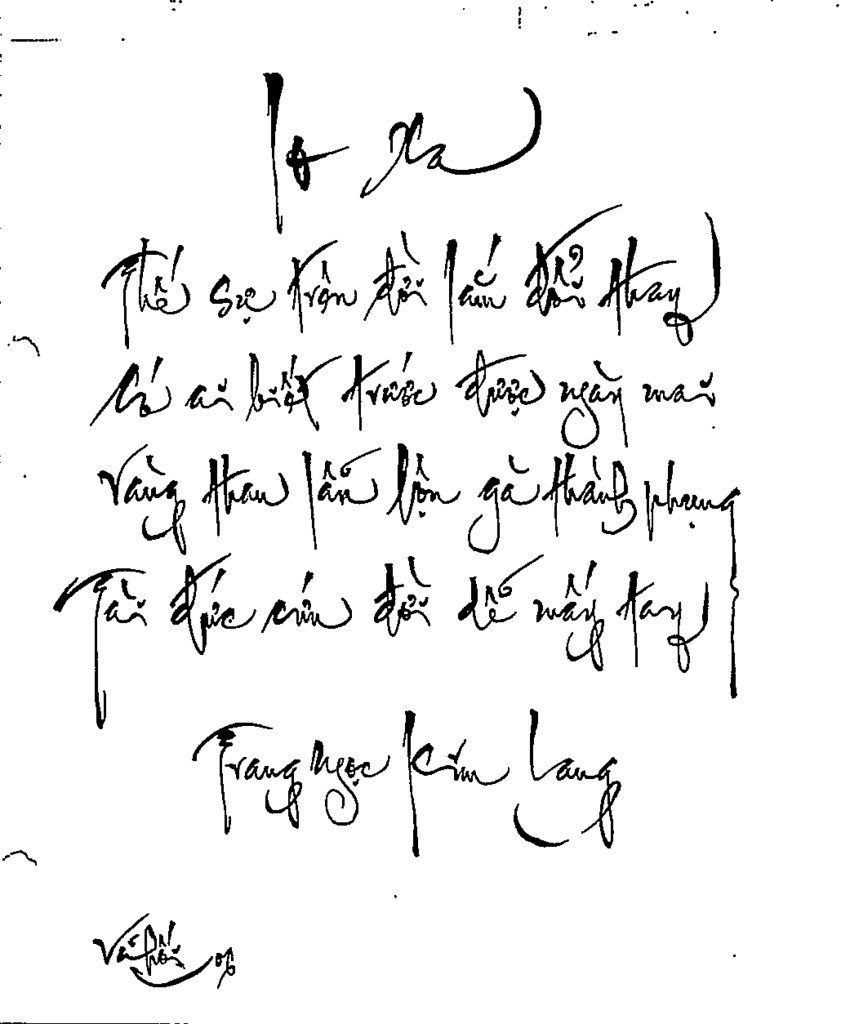 Lo Xa
Thế sự trên đời lắm đổi thay
Có ai biết trước được ngày mai
Vàng thau lẫn lộn gà thành phụng
Tài đức cứu đời dễ mấy tay
Trang Ngọc Kim Lang
06